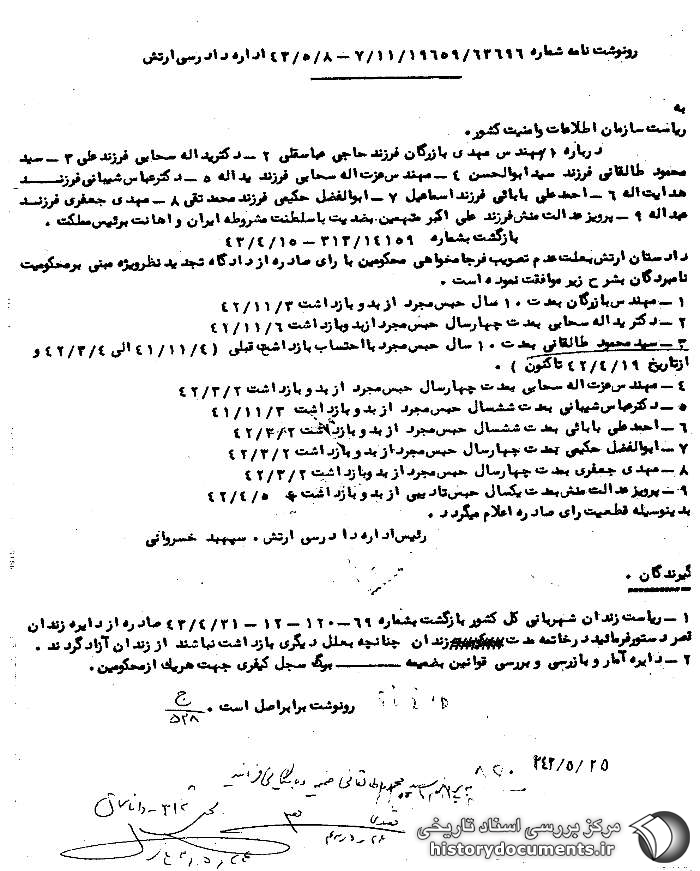 رونوشت نامه شماره ۷/۱۱/۱۹۶۵۹/۶۳۶۹۶ – ۴۳/۵/۸ اداره دادرسی ارتش
به
ریاست سازمان اطلاعات وامنیت کشور.
درباره ۱ مهندس مهدی بازرگان فرزند حاجی عباسقلی ۲ – دکتریداله سحابی فرزندعلی ۳ – سید
محمود طالقانی فرزند سیدابوالحسن ۴ – مهندس عزت اله سحابی فرزند یداله ۵ – دکترعباس شیبانی فرزند
هدایت اله ۶ – احمدعلی بابائی فرزنداسماعیل ۷ – ابوالفضل حکیمی فرزندمحمدتقی ۸ – مهدی جعفری فرزند
عبداله ۹ – پرویز عدالت منش فرزند علی اکبر متهمین بضدیت باسلطنت مشروطه ایران و اهانت برئیس مملکت .
بازگشت بشماره ۳۱۲/۱۴۱۵۹ – ۴۳/۴/۱۵
دادستان ارتش بعلت عدم تصویب فرجامخواهی محکومین با رای صادره از دادگاه تجدیدنظرویژه مبنی برمحکومیت
نامبردگان بشرح زیر موافقت نموده است .
۱ – مهندس بازرگان بمدت ۱۰ سال حبس مجرد از بدو بازداشت ۴۲/۱۱/۳
۲ – دکتریداله سحابی بمدت چهارسال حبس مجردازبدوبازداشت ۴۱/۱۱/۶
۳ – سیدمحمود طالقانی بمدت ۱۰ سال حبس مجرد بااحتساب بازداشت قبلی (۴۱/۱۱/۴ الی ۴۲/۳/۴ و
ازتاریخ ۴۲/۴/۱۹ تاکنون ) .
۴ – مهندس عزت اله سحابی بمدت چهارسال حبس مجرد از بدو بازداشت ۴۲/۳/۲
۵ – دکترعباس شیبانی بمدت ششسال حبس مجرد از بدو بازداشت ۴۱/۱۱/۳
۶ – احمدعلی بابائی بمدت ششسال حبس مجرد از بدو بازداشت ۴۲/۳/۲
۷ – ابوالفضل حکیمی بمدت چهارسال حبس مجرد از بدو بازداشت ۴۲/۳/۲
۸ – مهدی جعفری بمدت چهارسال حبس مجرد از بدوبازداشت ۴۲/۳/۲
۹ – پرویز عدالت منش بمدت یکسال حبس تادیبی از بدو بازداشت ۴۲/۴/۵
بدینوسیله قطعیت رای صادره اعلام میگردد .
رئیس اداره دادرسی ارتش . سپهبد خسروانی
گیرندگان .
۱ – ریاست زندان شهربانی کل کشور بازگشت بشماره ۶۹–۱۲۰ – ۱۲ – ۴۳/۴/۳۱ صادره از دایره زندان
قصر دستورفرمائید درخاتمه مدت زندان چنانچه بعلل دیگری بازداشت نباشند از زندان آزادگردند .
۲ – دایره آمار و بازرسی و بررسی قوانین بضمیمه ـــــ برگ سجل کیفری جهت هریک ازمحکومین .
رونوشت برابراصل است .
ج
۵۳۸
۴۳/۵/۲۵
مرکز بررسی اسناد تاریخی
historydocuments.ir